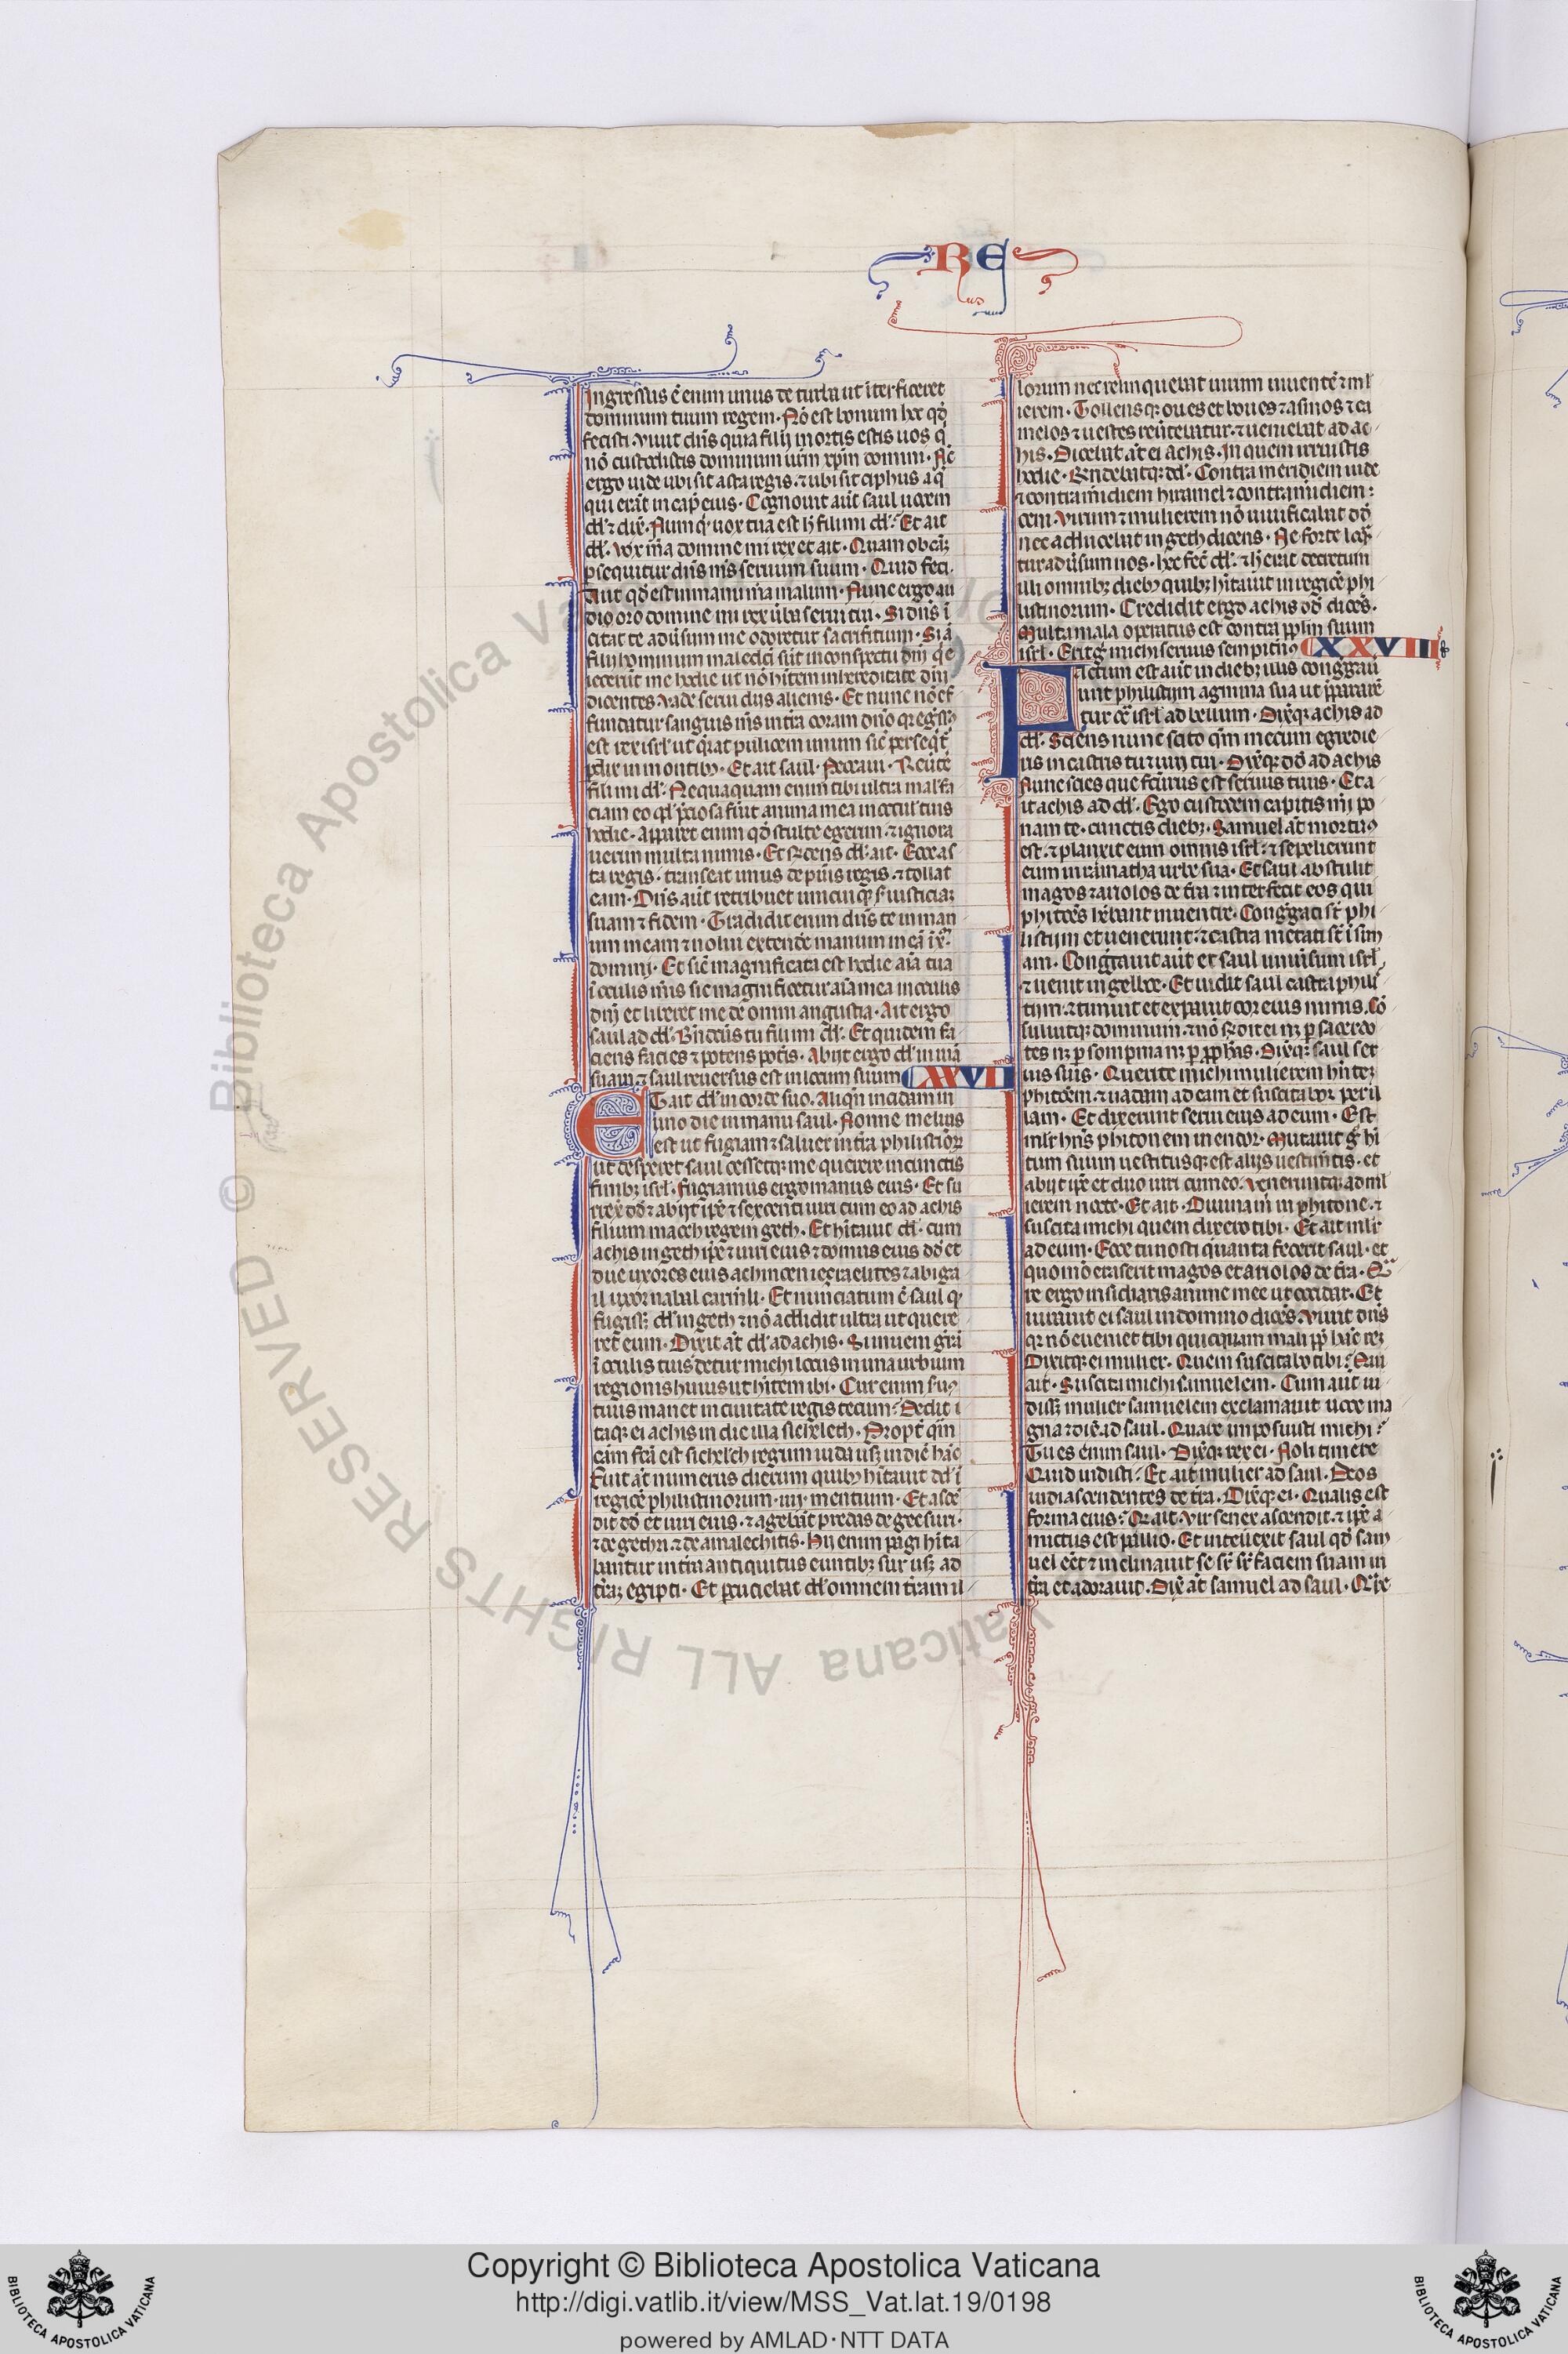 RE
Ingressus ē enim unus de turba ut īterficeret
dominum tuum regem. Nō est bonum hoc qḋ
fecisti. vivit dn̄s quia filij mortis estis uos q̇
nō custodistis dominum ur̄m xp̄m domini. Nc̄
ergo uide ubi sit asta regis. ⁊ ubi sit ciphus aq̄
qui erāt in cap̄ eius. Cognouit aūt saul uocem
dd̄. ⁊ dix̄. Numq̇ uox tua est h̄ fili mi dd̄. Et ait
dd̄. vox m̄a domine mi rex et ait. Quam ob cāꝫ
ꝑsequitur dn̄s m̄s seruum suum. Quid feci.
Aut qḋ est in manu m̄a malum. Nunc ergo au
di oro domine mi rex ūba serui tui. Si dn̄s ī
citat te adūsum me odoretur sacrifitium. Si ā
filij hominum maledc̄i sūt in conspectu dn̄j q̇ e
iecerūt me hodie ut nō hītem in hereditate dn̄i
dicentes vade serui diis alienis. Et nunc nō ef
fundatur sanguis m̄s in t̄ra coram dn̄o q̇ eḡssꝰ
est rex isrl̄ ut q̄rat pulicem unum sic̄ perseq̇t̄
ꝑdix in montibꝰ. Et ait saul. Peccaui. Reūte
fili mi dd̄. Nequaquam enim tibi ultra malefa
ciam eo qḋ p̄ciosa fūit anima mea in oculis tuis
hodie. apparet enim qḋ stulte egerim. ⁊ ignora
uerim multa nimis. Et r̄ndens dd̄. ait. Ecce as
ta regis. transeat unus de pūis regis. ⁊ tollat
eam. Dn̄s aūt retribuet unicuiqꝫ s̄ iusticiaꝫ
suam ⁊ fidem. Tradidit enim dn̄s te in man
um meam ⁊ nolui extend̄e manum in cā ix̄ꝫ
dominj. Et sic̄ magnificata est hodie aīa tua
ī oculis m̄is sic magnificetur aīa mea in oculis
dn̄j et liberet me de omni angustia. Ait ergo
saul ad dd̄. Bn̄dc̄us tu fili mi dd̄. Et quidem fa
ciens facies ⁊ potens pot̄is. Abijt ergo dd̄ in uiā
suam ⁊ saul reuersus est in locum suum XXVII
ET ait dd̄ in corde suo. Aliqn̄ incidam in
uno die in manu saul. Nonne melius
est ut fugiam ⁊ saluer in t̄ra philistiōꝝ
ut desperet saul cessetqꝫ me querere in cunctis
finibꝫ isrl̄. Fugiamus ergo manus eius. Et su
rrex̄ dd̄ ⁊ abijt ip̄e ⁊ sexcenti uiri cum eo ad achis
filium maoch regem geth. Et hītauit dd̄. cum
achis in geth ip̄e ⁊ uiri eius ⁊ domus eius dd̄ et
due uxores eius achinoen iezraelites ⁊ abiga
il uxor nabal carm̄li. Et nunciatum ē saul q̇
fugiss̄ꝫ dd̄ in geth ⁊ nō addidit ultra ut quere
ret̄ eum. Dixit āt dd̄ ad achis. Si inueni gr̄am
ī oculis tuis detur michi locus in una urbium
regionis huius ut hītem ibi. Cur enim s̄uꝰ
tuus manet in ciuitate regis tecum. Dedit i
taqꝫ ei achis in die illa sicheleth. Propt̄ qm̄
cām fc̄a est sichelech regum iuda usqꝫ in diē hāc
Fuit āt numerus dierum quibꝰ hītauit dd̄ ī
regiōe philistinorum. iiij. mentium. Et ascē
dit dd̄ et uiri eius. ⁊ agebāt predas de gessuri.
⁊ de gethri. ⁊ de amalechitis. Hij enim pagi hīta
bantur in t̄ra antiquitus euntibꝫ sur usqꝫ ad
t̄raꝫ egipti. Et ꝑcuciebat dd̄ omnem t̄ram il
lorum nec relinquebat uirum uiuentē ⁊ ml̄
ierem. Tollensqꝫ oues et boues ⁊ asinos ⁊ ca
melos ⁊ uestes reūtebatur. ⁊ ueniebat ad ac
his. Dicebat āt ei achis. In quem irruistis
hodie. Rn̄debatqꝫ dd̄. Contra meridiem iude
⁊ contra m̄idiem hiramel ⁊ contra m̄idiem
ceni. virum ⁊ mulierem nō uiuificabat dd̄
nec adducebat in geth dicens. Ne forte loq̄n
tur adūsum nos. hec fec̄ dd̄. ⁊ h̄ erat decretum
illi omnibꝫ diebꝰ quibꝫ hītauit in regiōe phi
listinorum. Credidit ergo achis dd̄ dicēs.
Multa mala operatus est contra pp̄lm suum
isrl̄. Erit ḡ michi seruus sempitnꝰ XXVIII
Factum est aūt in diebꝫ illis congḡaū
unt philistijm agmina sua ut p̄pararē
tur cōt̄ isrl̄ ad bellum. Dix̄qꝫ achis ad
dd̄. Sciens nunc scito qm̄ mecum egredie
ris in castris tu ⁊ uiri tui. Dix̄qꝫ dd̄ ad achis
Nunc scies que fc̄urus est seruus tuus. Et a
it achis ad dd̄. Ego custodem capitis mi po
nam te. cunctis diebꝫ. Samuel āt mortuꝰ
est. ⁊ planxit eum omnis isrl̄. ⁊ sepelierunt
eum in ramatha urbe sua. Et saul abstulit
magos ⁊ ariolos de t̄ra ⁊ interfecit eos qui
phitōes h̄ebant in uentre. Congḡati st̄ phi
listijm et uenerunt. ⁊ castra metati st̄ ī sun
am. Congḡauit aūt et saul uniūsum isrl̄
⁊ uenit in gelboe. Et uidit saul castra philis
tijm. ⁊ timuit et expauit cor eius nimis. Cō
suluitqꝫ dominum. ⁊ nō r̄ndit ei nqꝫ ꝑ sacerdo
tes nqꝫ ꝑ sompnia nqꝫ ꝑ ꝓph̄as. Dix̄qꝫ saul ser
uis suis. Querite michi mulierem hn̄tem
phitōem ⁊ uadam ad eam et suscitabor per il
lam. Et dixerunt serui eius ad eum. Est
ml̄r hn̄s phitonem in endor. Mutauit ḡ hi
tum suum uestitusqꝫ est alijs uestimn̄tis. et
abijt ip̄e et duo uiri cum eo. veneruntqꝫ ad ml̄
ierem nocte. Et ait. Diuina m̄ in phitone. ⁊
suscita michi quem dixero tibi. Et ait ml̄r
ad eum. Ecce tu nosti quanta fecerit saul. et
quomō eraserit magos et ariolos de t̄ra. Qu
re ergo insidiaris anime mee ut occidar. Et
iurauit ei saul in domino dicēs. Viuit dn̄s
qꝛ nō eueniet tibi quicquam mali ꝓp̄ hāc rēꝫ
Dixitqꝫ ei mulier. Quem suscitabo tibi. Qui
ait. Suscita michi samuelem. Cum aūt ui
diss̄ꝫ mulier samuelem exclamauit uoce ma
gna ⁊ dix̄ ad saul. Quare imposuisti michi.
Tu es enim saul. Dix̄qꝫ rex ei. Noli timere
Quid uidisti. Et ait mulier ad saul. Deos
uidi ascendentes de t̄ra. Dix̄qꝫ ei. Qualis est
forma eius. Q̄ ait. Vir senex ascendit. ⁊ ip̄e a
mictus est pallio. Et intellexit saul qḋ sam
uel eēt ⁊ inclinauit se sr̄ sr̄ faciem suam in
t̄ra et adorauit. Dix̄ āt samuel ad saul. Q̄re
Copyright © Biblioteca Apostolica Vaticana
http://digi.vatlib.it/view/MSS_Vat.lat.19/0198
powered by AMLAD·NTT DATA
BIBLIOTECA APOSTOLICA VATICANA
BIBLIOTECA APOSTOLICA VATICANA
© Biblioteca Apostolica Vaticana ALL RIGHTS RESERVED